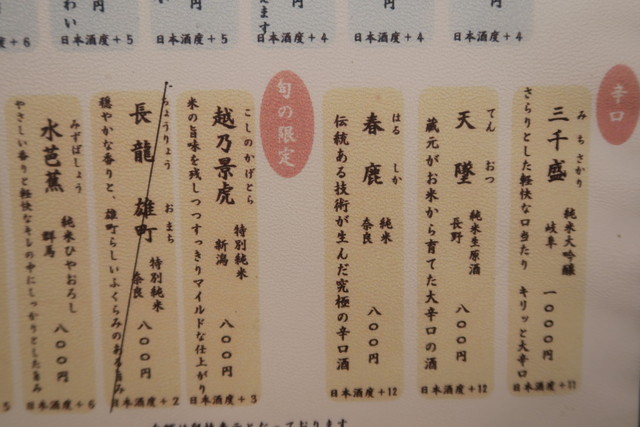 円
日本酒度+6
わい
円
日本酒度+5
円
日本酒度+5
きます
円
日本酒度+4
円
日本酒度+4
円
日本酒度+4
辛口
みちさかり
三千盛
純米大吟醸
岐阜
一〇〇〇円
さらりとした軽快な口当たり キリッと大辛口
日本酒度+11
てん おつ
天墜
純米生原酒
長野
八〇〇円
蔵元がお米から育てた大辛口の酒
日本酒度+12
はる しか
春鹿
純米
奈良
八〇〇円
伝統ある技術が生んだ究極の辛口酒
日本酒度+12
旬の限定
こしのかげとら
越乃景虎
特別純米
新潟
八〇〇円
米の旨味を残しつつすっきりマイルドな仕上がり
日本酒度+3
ちょうりょう おまち
長龍 雄町
特別純米
奈良
八〇〇円
穏やかな香りと、雄町らしいふくらみのある旨み
日本酒度+2
みずばしょう
水芭蕉
純米ひやおろし
群馬
八〇〇円
やさしい香りと軽快なキレの中にしっかりとした旨み
日本酒度+6
5